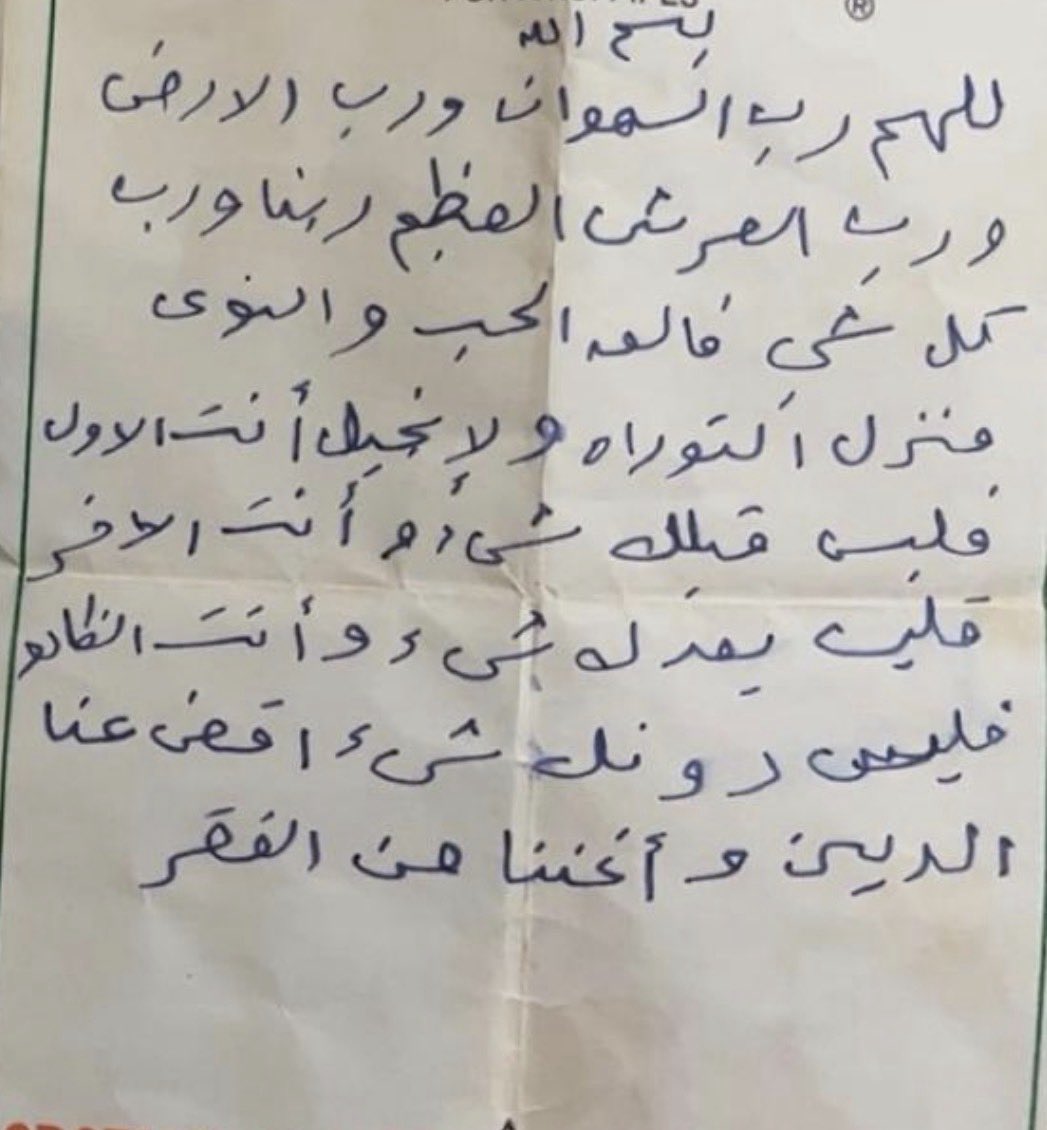 بسم الله
للهم رب السموات ورب الارض
ورب العرش العظيم ربنا ورب
كل شي فالق الحب والنوى
منزل التوراه ولإنجيل أنت الاول
فليس قبلك شيء وأنت الاخر
فليس بعدك شيء وأنت الظاهر
فليس دونك شيء اقض عنا
الدين وأغننا من الفقر